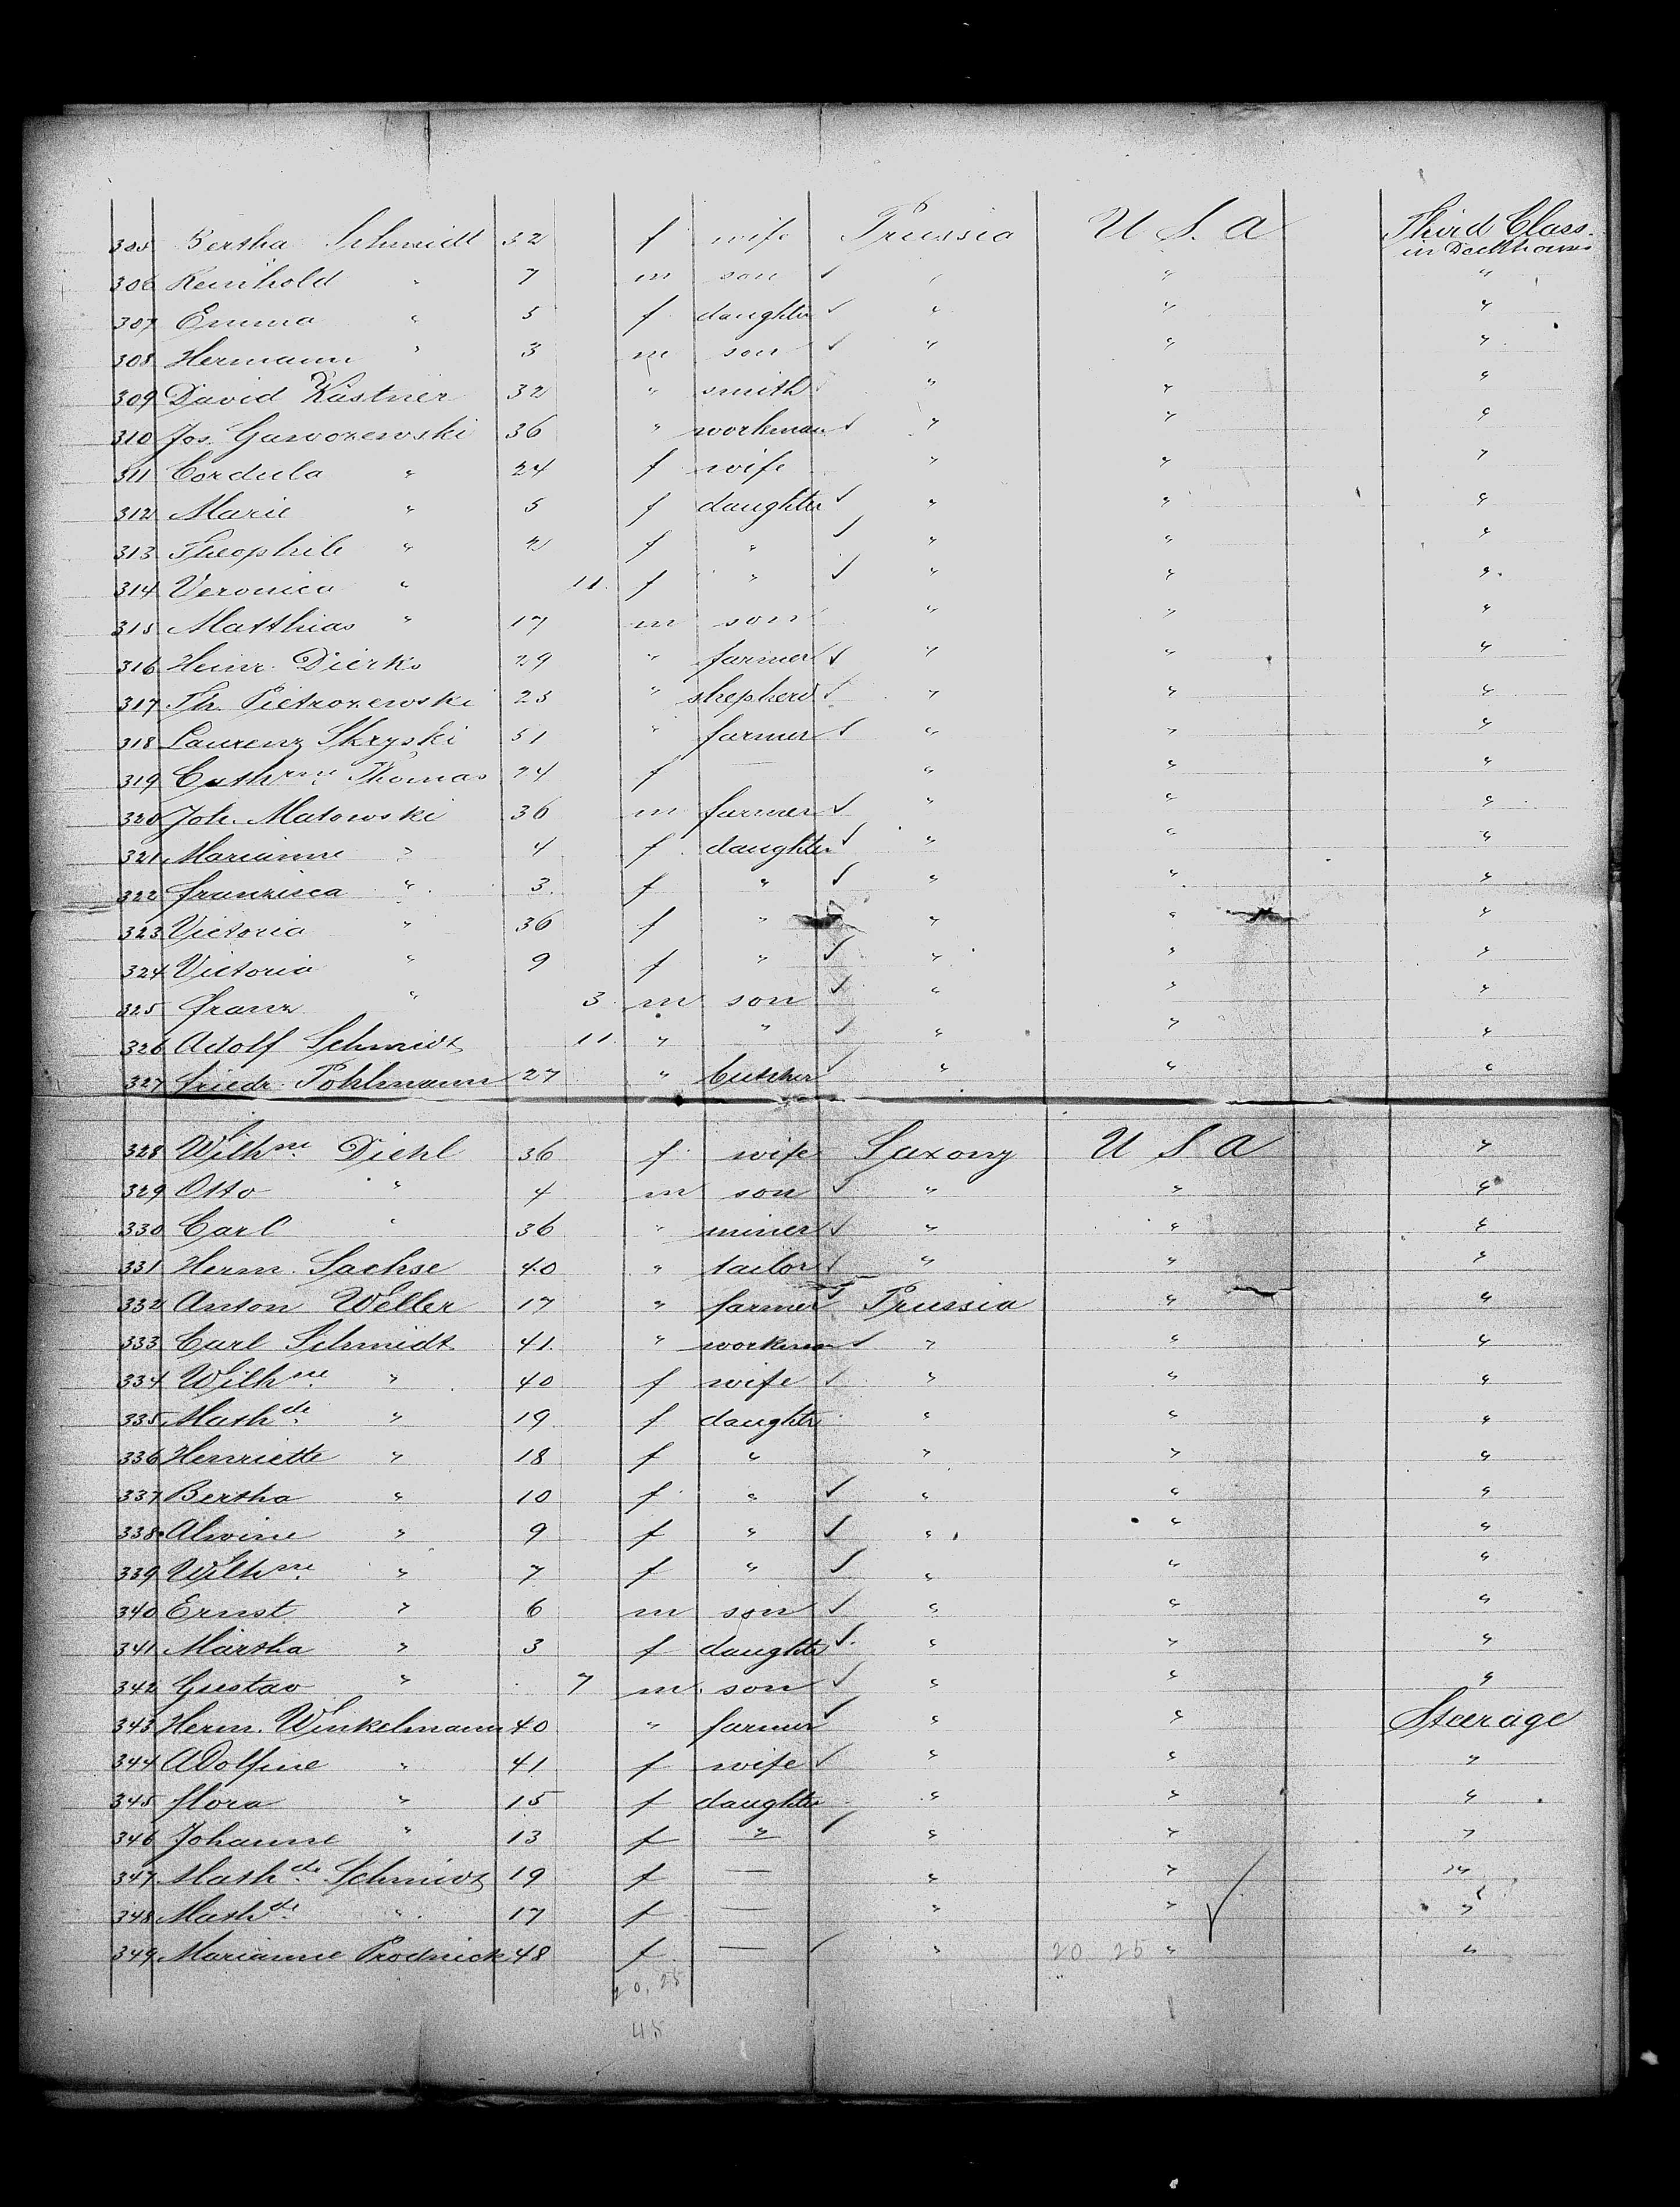 305 Bertha Schmidt 32 f wife Prussia U S. A Third Class. in Deckhouse
306 Reinhold " 7 m son ✓ " " "
307 Emma " 5 f daughter ✓ " " "
308 Hermann " 3 m son ✓ " " "
309 David Kästner 32 " smith ✓ " " "
310 Jos. Gaworzewski 36 " workman ✓ " " "
311 Cordula " 24 f wife " " "
312 Marie " 5 f daughter ✓ " " "
313 Theophile " f " ✓ " " "
314 Veronica " 11. f " ✓ " " "
315 Matthias " 17 m son " " "
316 Heinr. Dierks 29 " farmer ✓ " " "
317 Th. Pietrozewski 25 " shepherd ✓ " " "
318 Laurenz Skryski 51 " farmer ✓ " " "
319 Cathrne Thomas 24 f — " " "
320 Joh. Matowski 36 m farmer ✓ " " "
321 Marianne " 4 f daughter ✓ " " "
322 Franzisca " 3. f " ✓ " " "
323 Victoria " 36 f " " " "
324 Victoria " 9 f " ✓ " " "
325 Franz " 3. m son ✓ " " "
326 Adolf Schmidt 11 " " ✓ " " "
327 Friedr. Pohlmann 27 " butcher ✓ " " "
328 Wilhne Diehl 36 f wife Saxony U S A "
329 Otto " 4 m son ✓ " " "
330 Carl " 36 " miner ✓ " " "
331 Herm. Sachse 40 " tailor ✓ " " "
332 Anton Weller 17 " farmer ✓ Prussia " "
333 Carl Schmidt 41. " workman ✓ " " "
334 Wilhne " 40 f wife ✓ " " "
335 Mathde " 19 f daughter " " "
336 Henriette " 18 f " " " "
337 Bertha " 10 f " ✓ " " "
338 Alwine " 9 f " ✓ " " "
339 Wilhne " 7 f " ✓ " " "
340 Ernst " 6 m son ✓ " " "
341 Martha " 3 f daughter ✓ " " "
342 Gustav " 7 m son ✓ " " "
343 Herm. Winkelmann 40 " farmer ✓ " " Steerage
344 Adolfine " 41 f wife ✓ " " "
345 Flora " 15 f daughter " " "
346 Johanne " 13 f " ✓ " " "
347 Mathde Schmidt 19 f — " " "
348 Mathde " 17 f — " " ✓ "
349 Marianne Prodnick 48 f — ✓ " 20 25 " "
20,25
45